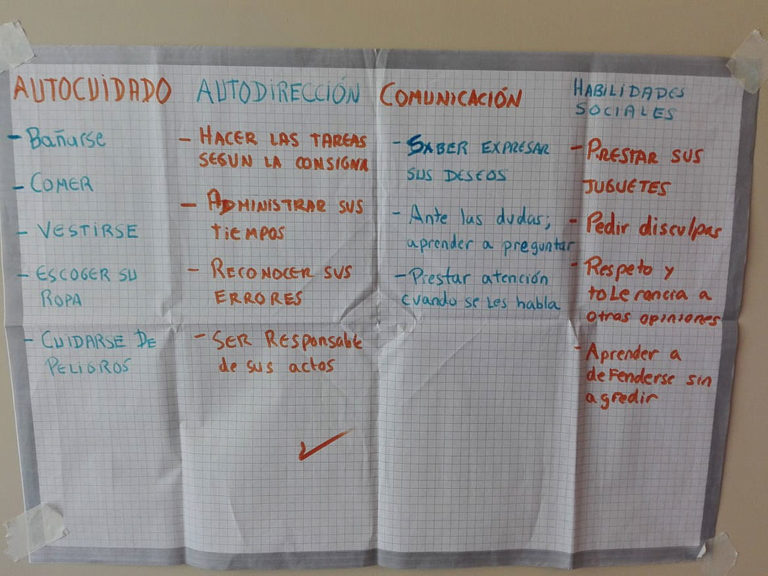 AUTOCUIDADO
- Bañarse
- COMER
- VESTIRSE
- ESCOGER SU
ROPA
- CUIDARSE DE
PELIGROS
AUTODIRECCIÓN
- HACER LAS TAREAS
SEGUN LA CONSIGNA
- ADMINISTRAR SUS
TIEMPOS
- RECONOCER SUS
ERRORES
- SER RESPonsable
de sus actos
COMUNICACIÓN
- SABER EXPRESAR
SUS DESEOS
- Ante las dudas;
aprender a preguntar
- Prestar atención
cuando se les habla
HABILIDADES
SOCIALES
- PRESTAR SUS
JUGUETES
- Pedir disculpas
- Respeto y
tolerancia a
otras opiniones
- Aprender a
defenderse sin
agredir